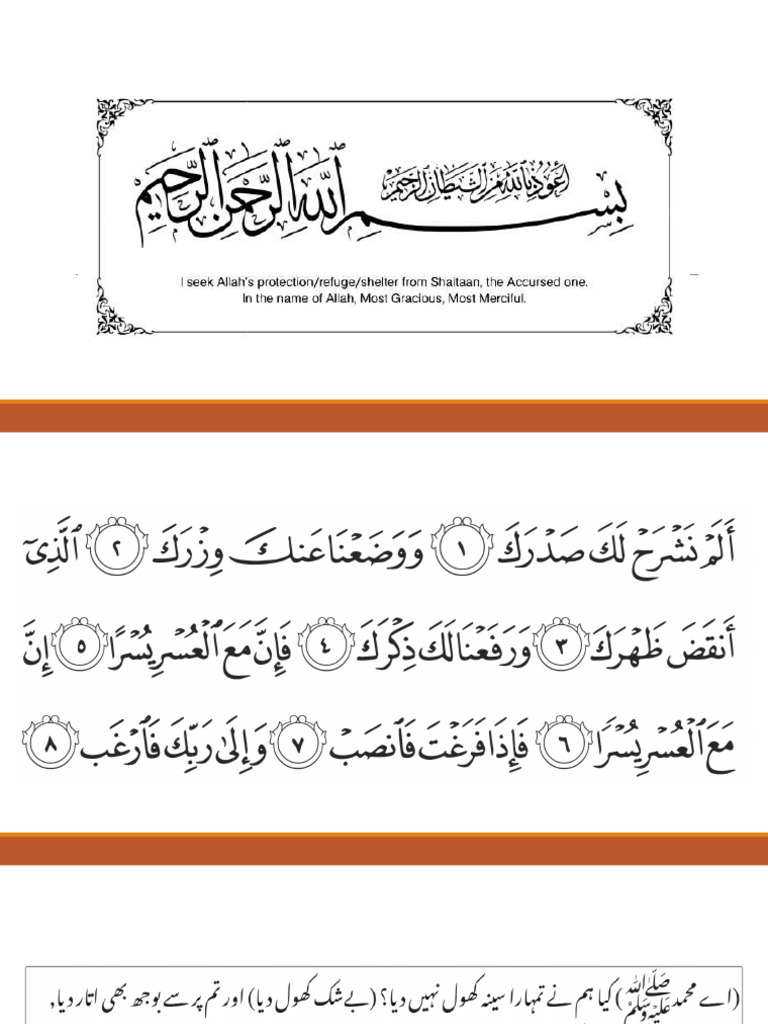 أعوذ بالله من الشيطان الرجيم
بِسْمِ اللَّهِ الرَّحْمَٰنِ الرَّحِيمِ
I seek Allah's protection/refuge/shelter from Shaitaan, the Accursed one.
In the name of Allah, Most Gracious, Most Merciful.
أَلَمْ نَشْرَحْ لَكَ صَدْرَكَ ١ وَوَضَعْنَا عَنكَ وِزْرَكَ ٢ ٱلَّذِىٓ
أَنقَضَ ظَهْرَكَ ٣ وَرَفَعْنَا لَكَ ذِكْرَكَ ٤ فَإِنَّ مَعَ ٱلْعُسْرِ يُسْرًا ٥ إِنَّ
مَعَ ٱلْعُسْرِ يُسْرًا ٦ فَإِذَا فَرَغْتَ فَٱنصَبْ ٧ وَإِلَىٰ رَبِّكَ فَٱرْغَب ٨
(اے محمد صَلَّى اللّٰه عَلَيْهِ وَسَلَّم) کیا ہم نے تمہارا سینہ کھول نہیں دیا؟ (بے شک کھول دیا) اور تم پر سے بوجھ بھی اتار دیا,